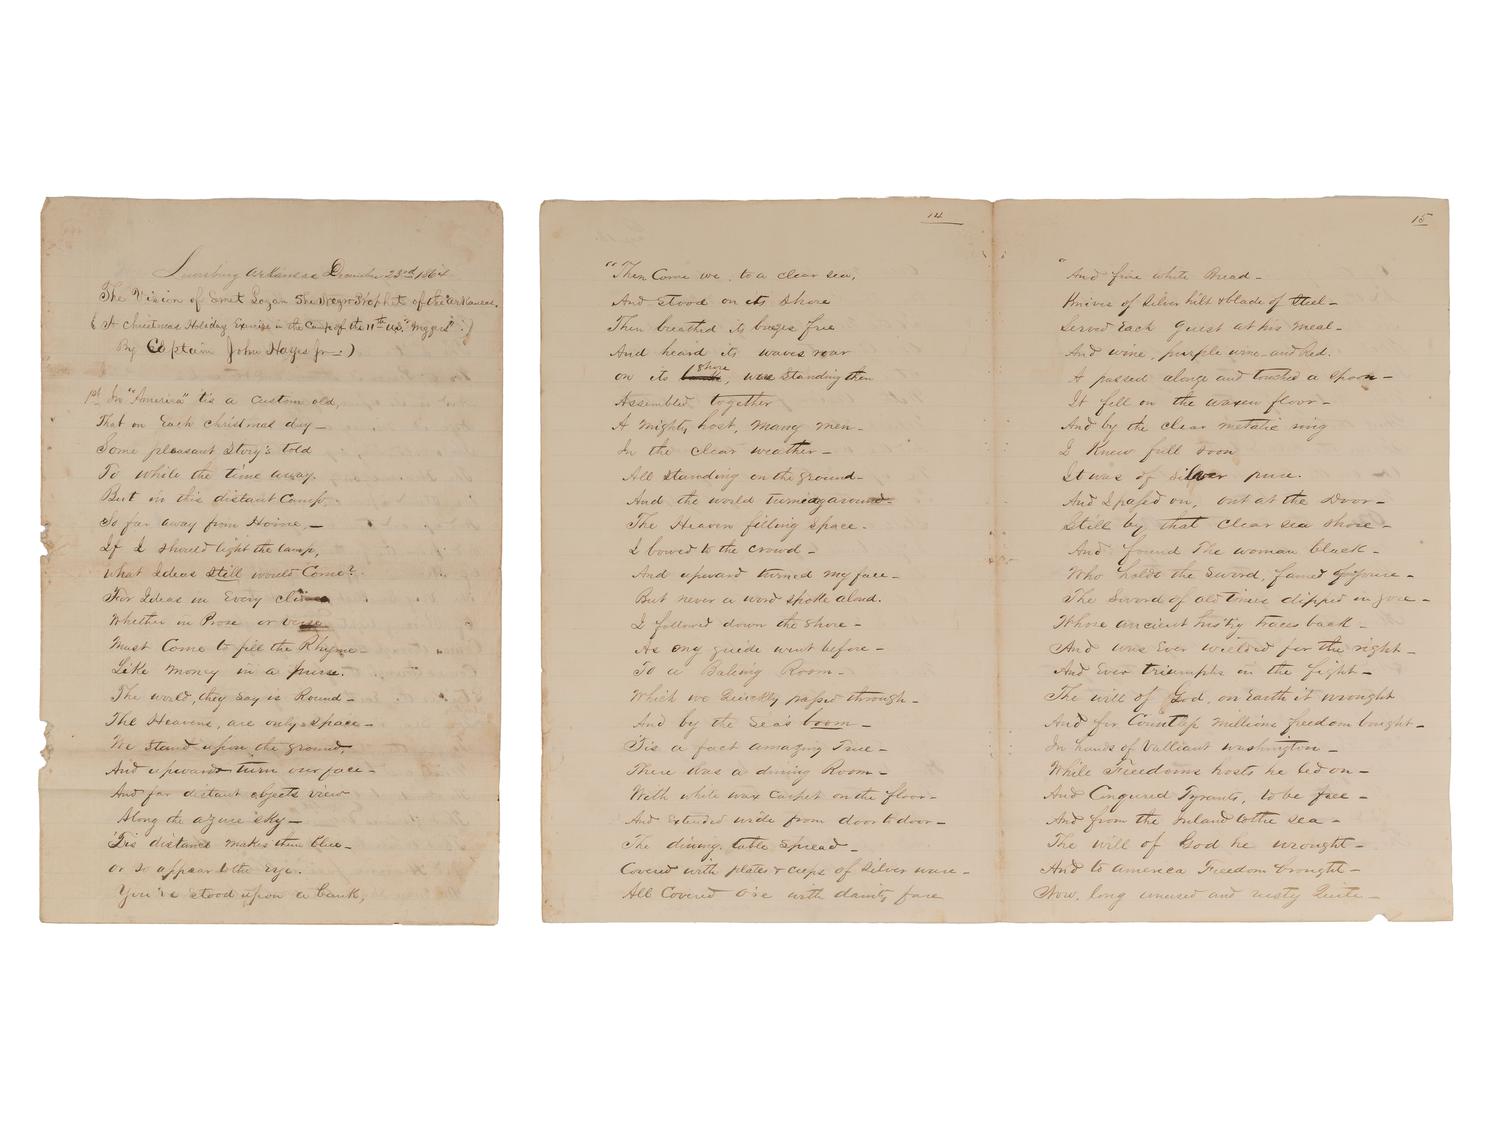 Lewisburg Arkansas December 23rd 1864
The Vision of Emet Logan The Negro Prophet of the Arkansas.
(A Christmas Holiday Exercise in the Camp of the 11th U.S. "
By Captain John Hayes Jr.)
1st In "America" tis a custom old,
That on Each Christmas day—
Some pleasant Story's told
To while the time away.
But in this distant Camp,
So far away from Home,—
If I should light the lamp,
what Ideas Still would Come?
For Ideas in Every
Whether in Prose or verse
Must Come to fill the Rhyme—
Like money in a purse.
The world, they say is Round—
The Heavens, are only space—
We Stand upon the ground,
And upward turn our face—
And far distant objects view
Along the azure sky—
'Tis distance makes them blue—
or so appear to the eye.
You've stood upon a bank,
14
" "Then Come we, to a clear sea,
And stood on its Shore
Then breathed its breezes free
And heard its waves roar
on its shore, were Standing then
Assembled together
A Mighty host, Many men—
In the Clear weather—
All Standing on the ground—
And the world turning around—
The Heaven filling space.
I bowed to the crowd—
And upward turned my face—
But never a word spoke aloud.
I followed down the Shore—
As my guide went before—
To a Bathing Room—
Which we Quickly passed through—
And by the Sea's boom—
'Tis a fact amazing True—
There was a dining Room—
With white wax Carpet on the floor—
And Extended wide from door to door—
The dining table Spread—
Covered with plates & cups of Silver ware—
All Covered o're with dainty fare
15
" And fine white Bread—
Knives of Silver hilt & blade of Steel—
Served Each Guest at his meal—
And wine, purple wine—and Red.
I passed alonge and touched a Spoon—
It fell on the waxen floor—
And by the clear metalic ring
I Knew full soon
It was of silver pure.
And I passed on, out at the Door—
Still by that Clear sea shore—
And found The woman black—
Who holds the Sword, famed of yore—
The Sword of old times dipped in gore—
Whose ancient history traces back—
And was Ever wielded for the right—
And Ever triumphs in the fight—
The will of God, on Earth it wrought
And for Countless Millions freedom bought—
In hands of Valliant Washington—
While Freedoms hosts he led on—
And Conquered Tyrants, to be free—
And from the Inland to the Sea—
The will of God he wrought—
And to America Freedom brought—
Now, long unused and rusty Quite—